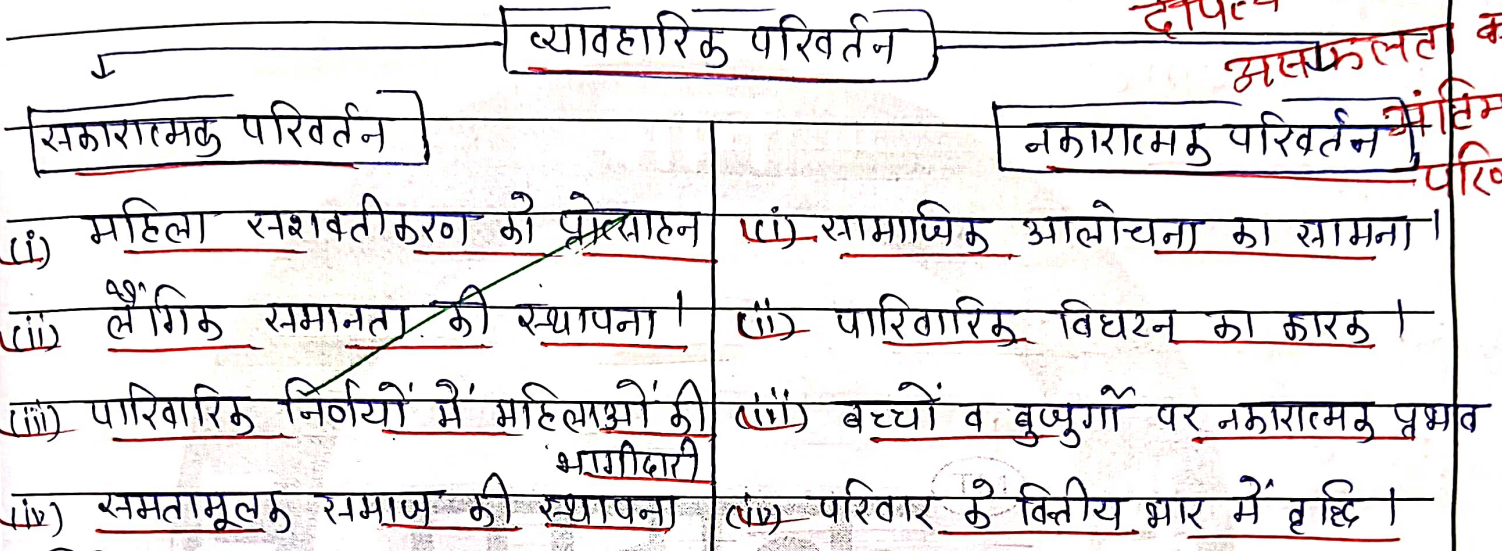 व्यावहारिक परिवर्तन
असफलता
सकारात्मक परिवर्तन
नकारात्मक परिवर्तन
(i) महिला सशक्तीकरण को प्रोत्साहन
(ii) लैंगिक समानता की स्थापना।
(iii) पारिवारिक निर्णयों में महिलाओं की
भागीदारी
(iv) समतामूलक समाज की स्थापना
(i) सामाजिक आलोचना का सामना।
(ii) पारिवारिक विघटन का कारक।
(iii) बच्चों व बुजुर्गों पर नकारात्मक प्रभाव
(iv) परिवार के वित्तीय भार में वृद्धि।